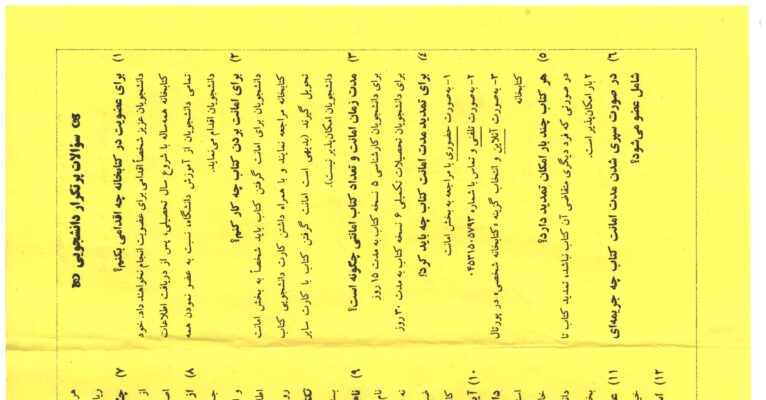 سؤالات پرتکرار دانشجویی
۱) برای عضویت در کتابخانه چه اقدامی بکنم؟
دانشجویان عزیز شخصاً اقدامی برای عضویت انجام نخواهند داد. خود
کتابخانه همه‌ساله با شروع سال تحصیلی، پس از دریافت اطلاعات
تمامی دانشجویان از آموزش دانشگاه، نسبت به عضو نمودن همه
دانشجویان اقدام می‌نماید.
۲) برای امانت بردن کتاب چه کار کنم؟
دانشجویان برای امانت گرفتن کتاب باید شخصاً به بخش امانت
کتابخانه مراجعه نمایند و با همراه داشتن کارت دانشجویی کتاب
تحویل گیرند (بدیهی است امانت گرفتن کتاب با کارت سایر
دانشجویان امکان‌پذیر نیست).
۳) مدت زمان امانت و تعداد کتاب امانتی چگونه است؟
برای دانشجویان کارشناسی ۵ نسخه کتاب به مدت ۱۵ روز
برای دانشجویان تحصیلات تکمیلی ۶ نسخه کتاب به مدت ۳۰ روز
۴) برای تمدید مدت امانت کتاب چه باید کرد؟
۱- به‌صورت حضوری با مراجعه به بخش امانت
۲- به‌صورت تلفنی و تماس با شماره ۰۴۵۳۱۵۰۵۷۹۳
۳- به‌صورت آنلاین و انتخاب گزینه «کتابخانه شخصی» در پورتال
کتابخانه
۵) هر کتاب چند بار امکان تمدید دارد؟
در صورتی که فرد دیگری متقاضی آن کتاب نباشد، تمدید کتاب تا
۲ بار امکان‌پذیر است.
۶) در صورت سپری شدن مدت امانت کتاب چه جریمه‌ای
شامل عضو می‌شود؟
هر
ریا
۷)
از
۸)
۹)
۱۰)
۱۱)
۱۲)